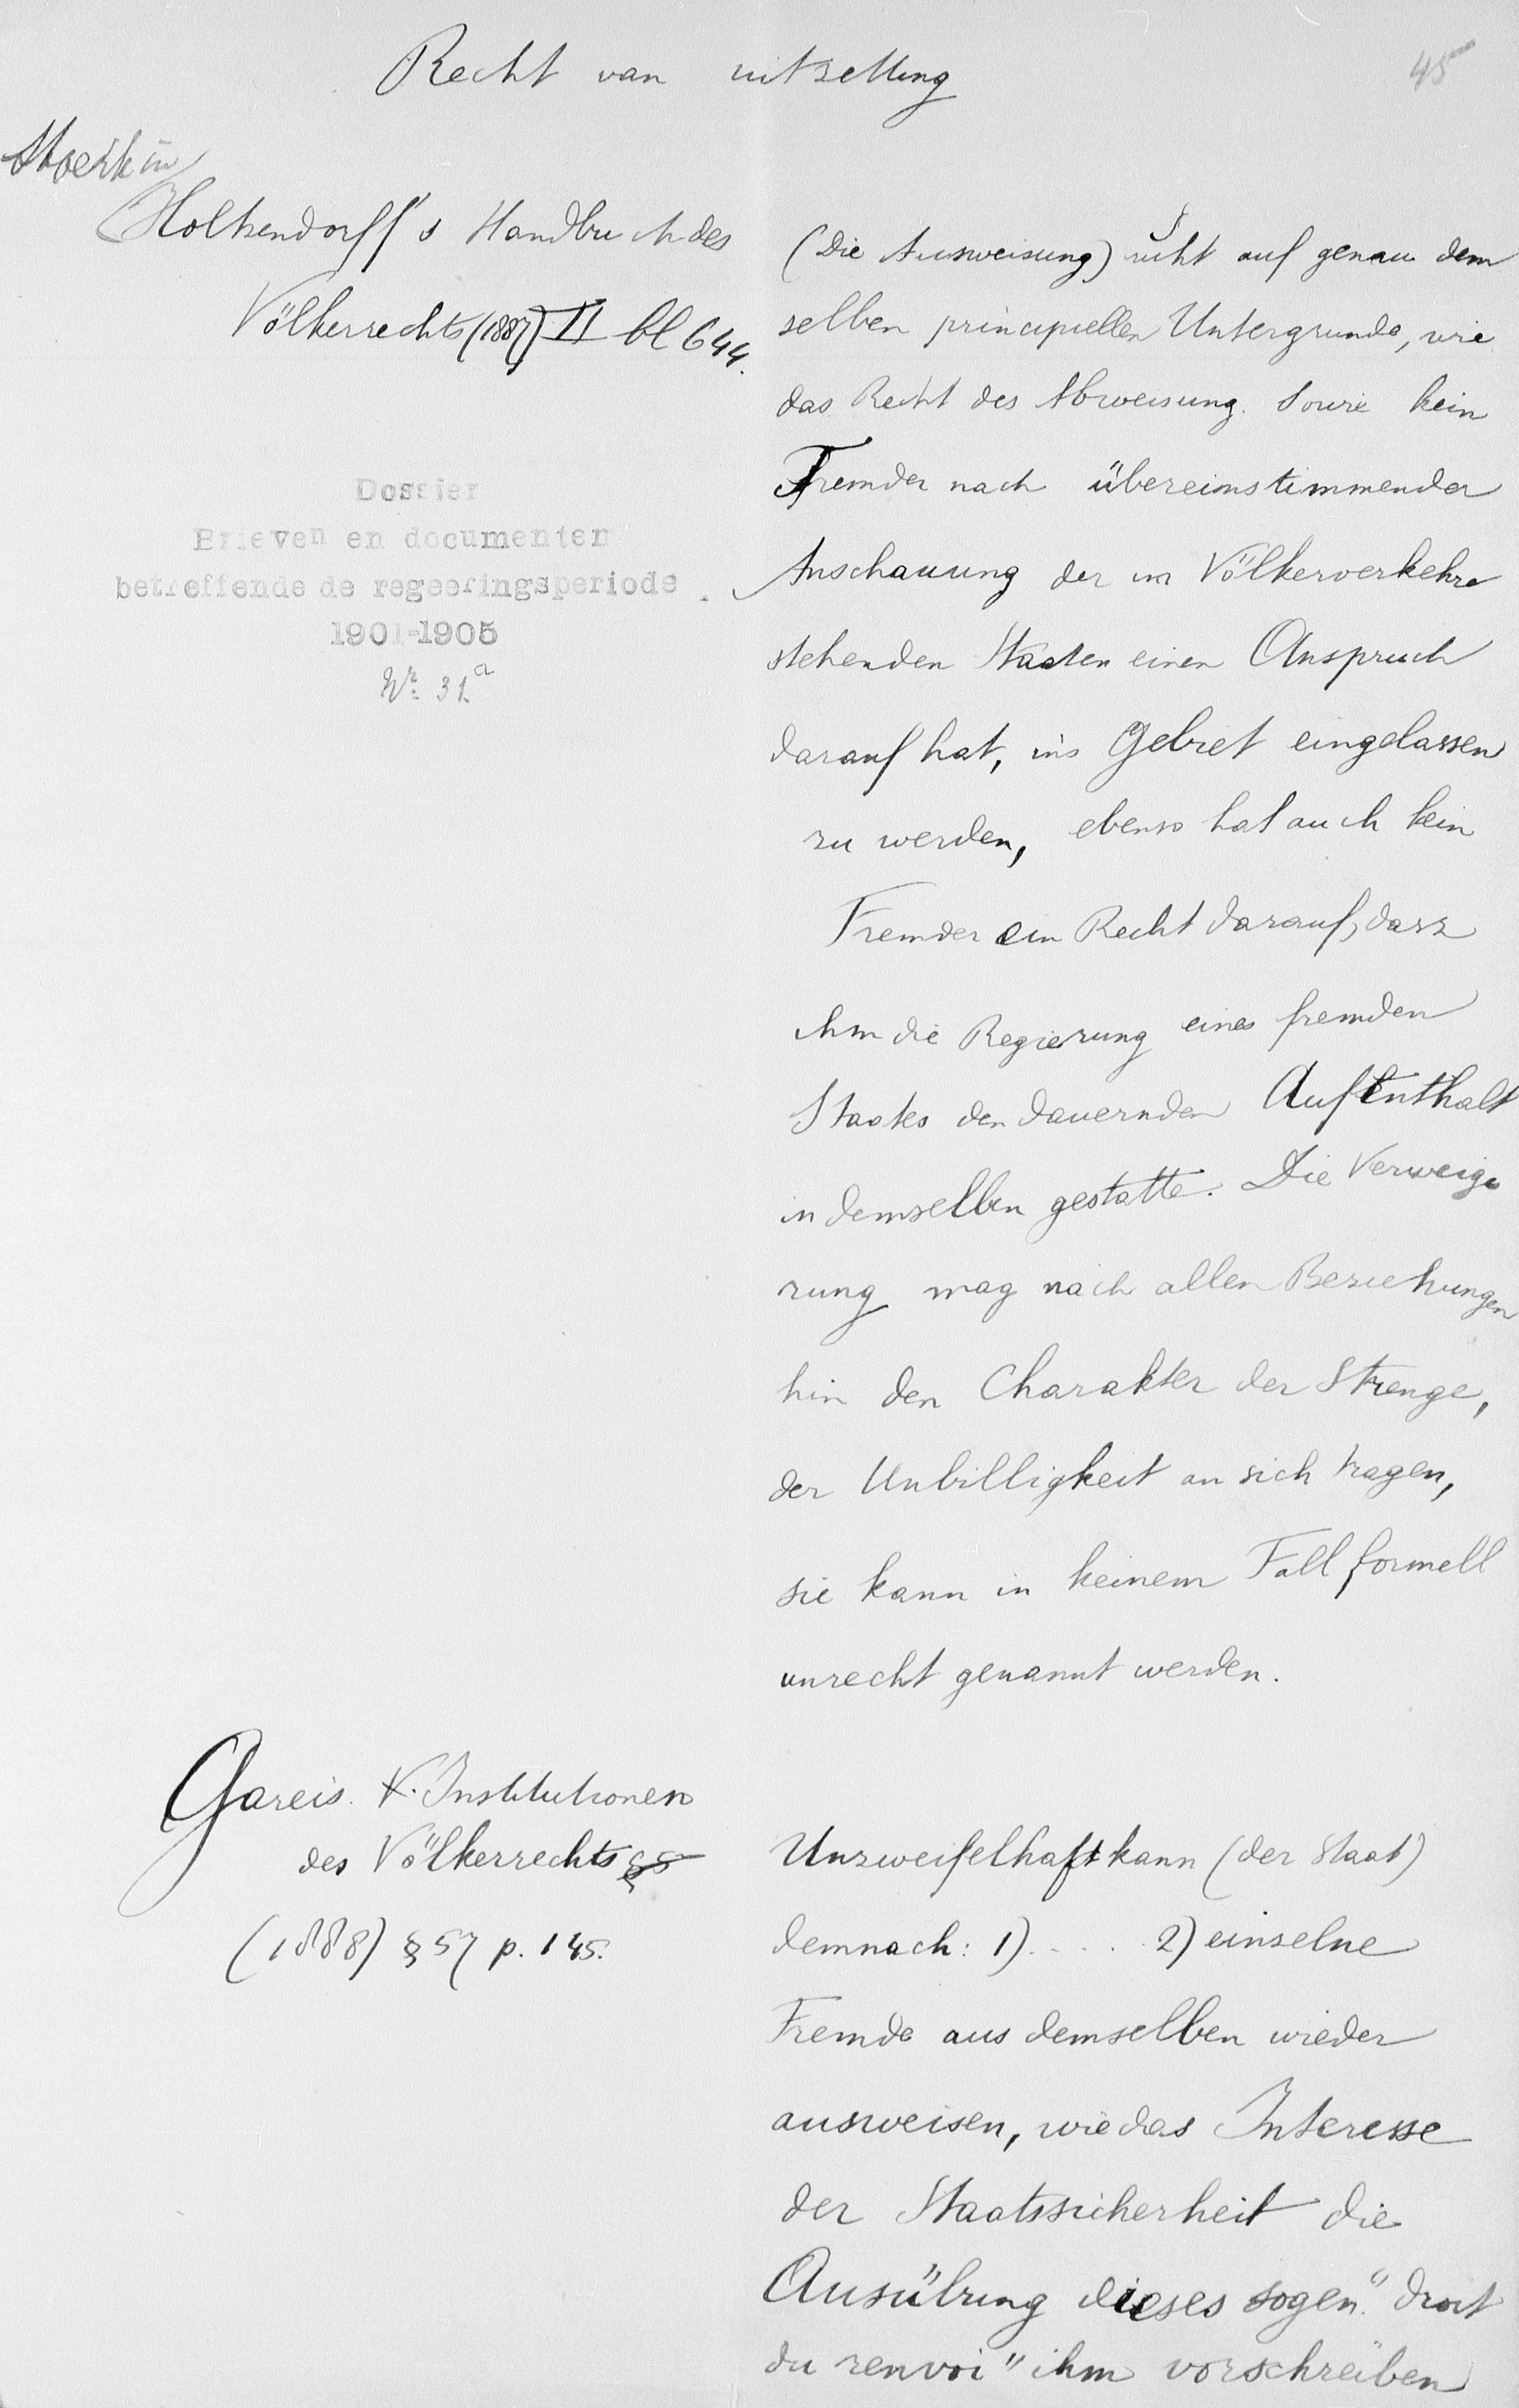 Recht van uitzetting
45
Stoerk in
Holtzendorff's Handbuch des
Völkerrechts (1887) II bl 644.
Dossier
Brieven en documenten
betreffende de regeeringsperiode
1901-1905
No. 31a
(Die Ausweisung) ruht auf genau dem
selben principiellen Untergrunde, wie
das Recht des Abweisung. Sowie kein
Fremder nach übereinstimmender
Anschauung der im Völkerverkehre
stehenden Staaten einen Anspruch
darauf hat, ins Gebiet eingelassen
zu werden, ebenso hat auch kein
Fremder ein Recht darauf, dasz
ihm die Regierung eines fremden
Staates den dauernden Aufenthalt
in demselben gestatte. Die Verweige
rung mag nach allen Beziehungen
hin den Charakter der Strenge,
der Unbilligkeit an sich tragen,
sie kann in keinem Fall formell
unrecht genannt werden.
Gareis. K. Institutionen
des Völkerrechts
(1888) § 57 p. 145.
Unzweifelhaft kann (der Staat)
demnach: 1) . . . . 2) einselne
Fremde aus demselben wieder
ausweisen, wie das Interesse
der Staatssicherheit die
Ausübung dieses sogen. "droit
du renvoi" ihm vorschreiben